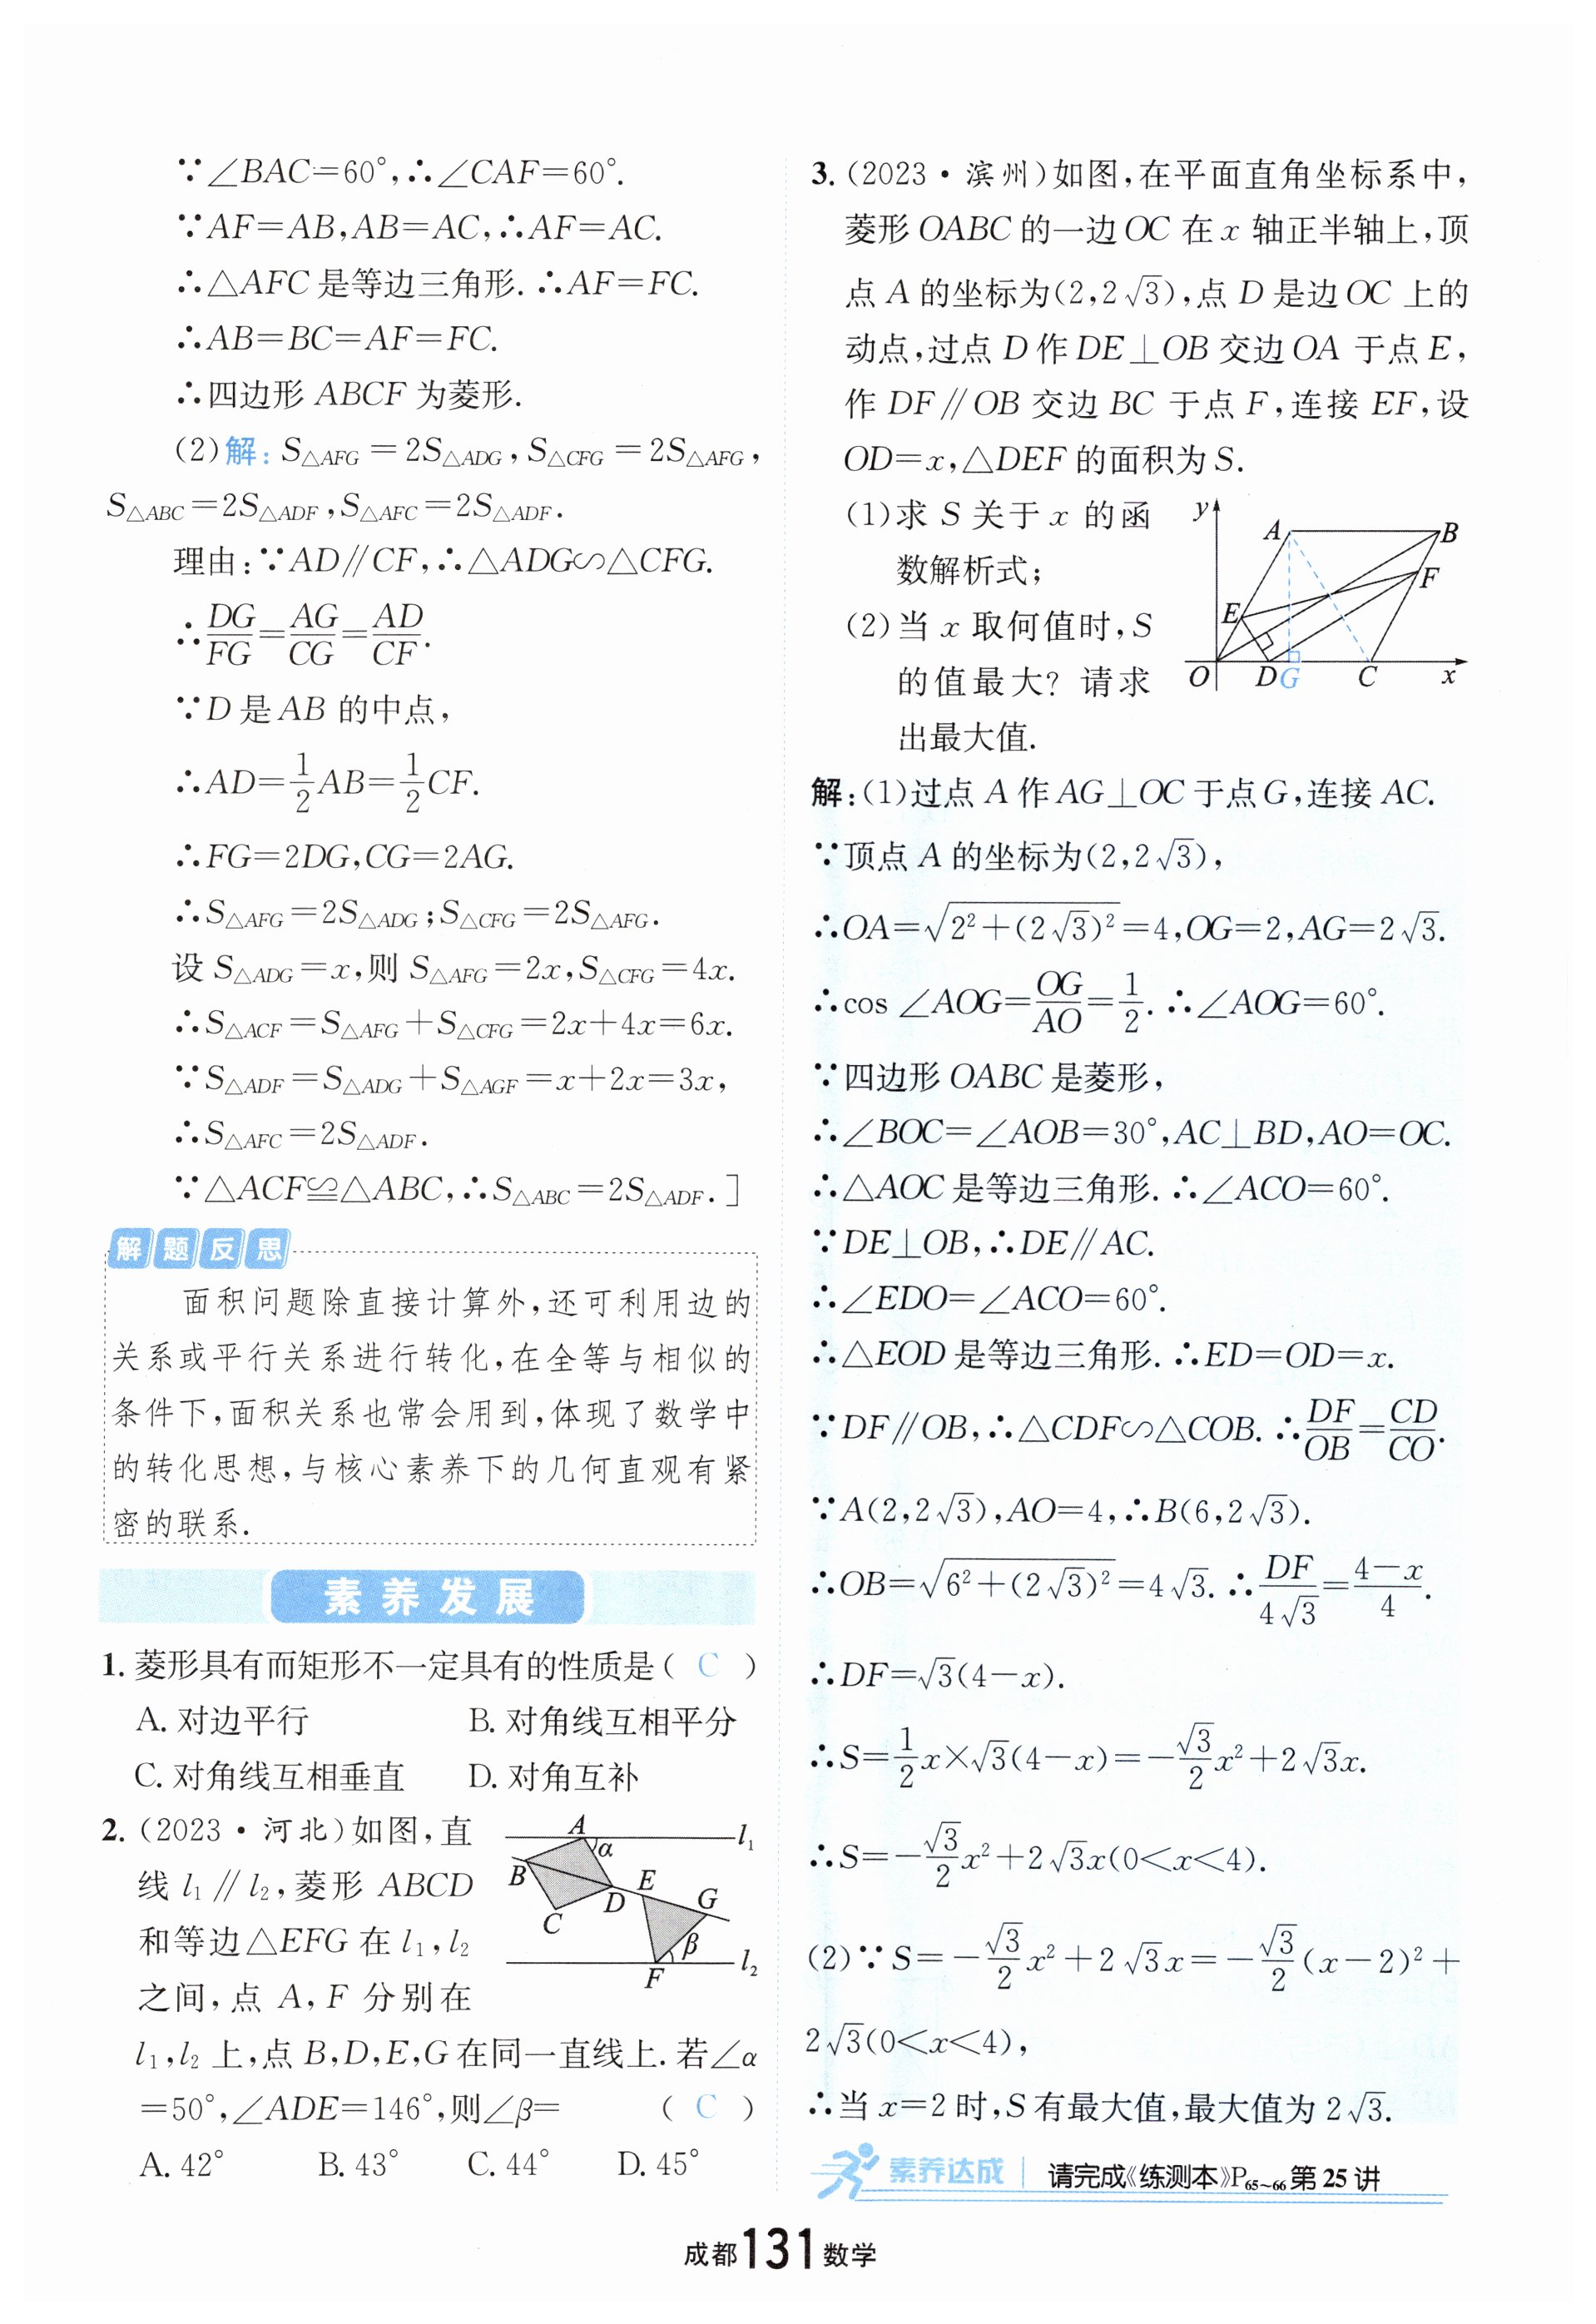 ∵∠BAC=60°,∴∠CAF=60°.
∵AF=AB,AB=AC,∴AF=AC.
∴△AFC是等边三角形.∴AF=FC.
∴AB=BC=AF=FC.
∴四边形ABCF为菱形.
(2)解:S△AFG=2S△ADG,S△CFG=2S△AFG,
S△ABC=2S△ADF,S△AFC=2S△ADF.
理由:∵AD∥CF,∴△ADG∽△CFG.
∴DG/FG=AG/CG=AD/CF.
∵D是AB的中点,
∴AD=1/2AB=1/2CF.
∴FG=2DG,CG=2AG.
∴S△AFG=2S△ADG;S△CFG=2S△AFG.
设S△ADG=x,则S△AFG=2x,S△CFG=4x.
∴S△ACF=S△AFG+S△CFG=2x+4x=6x.
∵S△ADF=S△ADG+S△AGF=x+2x=3x,
∴S△AFC=2S△ADF.
∵△ACF≌△ABC,∴S△ABC=2S△ADF.]
解题反思
面积问题除直接计算外,还可利用边的
关系或平行关系进行转化,在全等与相似的
条件下,面积关系也常会用到,体现了数学中
的转化思想,与核心素养下的几何直观有紧
密的联系.
素养发展
1.菱形具有而矩形不一定具有的性质是( C )
A.对边平行 B.对角线互相平分
C.对角线互相垂直 D.对角互补
2.(2023·河北)如图,直
线l₁∥l₂,菱形ABCD
和等边△EFG在l₁,l₂
之间,点A,F分别在
l₁,l₂上,点B,D,E,G在同一直线上.若∠α
=50°,∠ADE=146°,则∠β= ( C )
A.42° B.43° C.44° D.45°
A
l₁
α
B
D
E
G
C
β
F
l₂
3.(2023·滨州)如图,在平面直角坐标系中,
菱形OABC的一边OC在x轴正半轴上,顶
点A的坐标为(2,2√3),点D是边OC上的
动点,过点D作DE⊥OB交边OA于点E,
作DF∥OB交边BC于点F,连接EF,设
OD=x,△DEF的面积为S.
(1)求S关于x的函
数解析式;
(2)当x取何值时,S
的值最大?请求
出最大值.
y
A
B
F
E
O
D
G
C
x
解:(1)过点A作AG⊥OC于点G,连接AC.
∵顶点A的坐标为(2,2√3),
∴OA=√(2²+(2√3)²)=4,OG=2,AG=2√3.
∴cos∠AOG=OG/AO=1/2.∴∠AOG=60°.
∵四边形OABC是菱形,
∴∠BOC=∠AOB=30°,AC⊥BD,AO=OC.
∴△AOC是等边三角形.∴∠ACO=60°.
∵DE⊥OB,∴DE∥AC.
∴∠EDO=∠ACO=60°.
∴△EOD是等边三角形.∴ED=OD=x.
∵DF∥OB,∴△CDF∽△COB.∴DF/OB=CD/CO.
∵A(2,2√3),AO=4,∴B(6,2√3).
∴OB=√(6²+(2√3)²)=4√3.∴DF/4√3=(4-x)/4.
∴DF=√3(4-x).
∴S=1/2x×√3(4-x)=-√3/2x²+2√3x.
∴S=-√3/2x²+2√3x(0<x<4).
(2)∵S=-√3/2x²+2√3x=-√3/2(x-2)²+
2√3(0<x<4),
∴当x=2时,S有最大值,最大值为2√3.
素养达成 请完成《练测本》P65~66第25讲
成都131数学